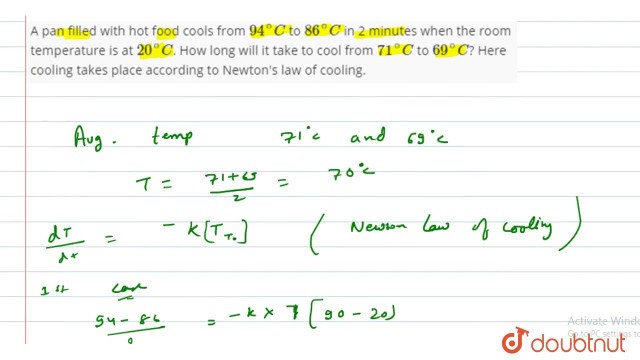 A pan filled with hot food cools from 94°C to 86°C in 2 minutes when the room
temperature is at 20°C. How long will it take to cool from 71°C to 69°C? Here
cooling takes place according to Newton's law of cooling.
Avg. temp 71°C and 69°C
T = 71+69/2 = 70°C
dT/dt = - K[T T₀] ( Newton Law of cooling )
1st case
94-86/ = -K × [90-20)
Activate Windo
Go to PC settings to
doubtnut